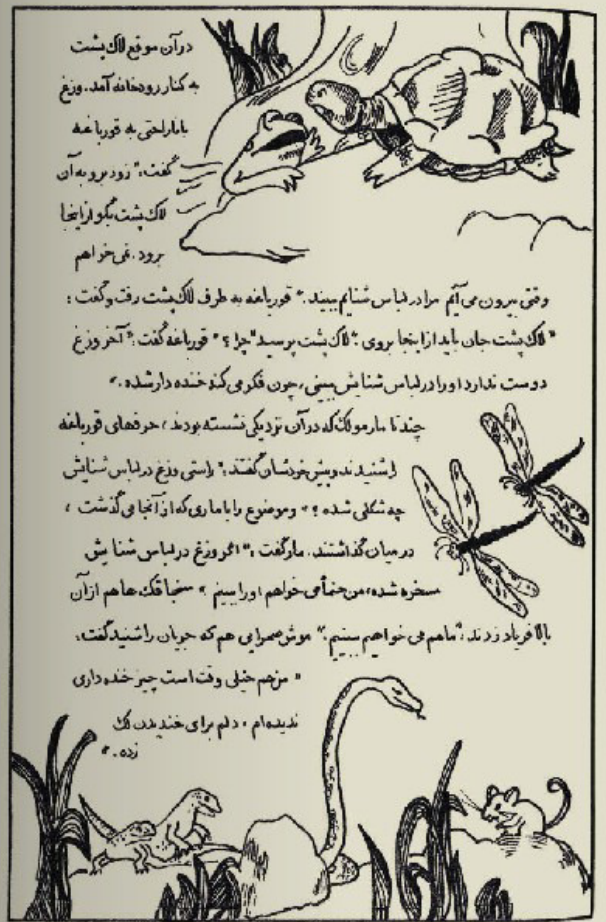 درآن موقع لاک پشت
به کنار رودخانه آمد. وزغ
با ناراحتی به قورباغه
گفت: "زود برو به آن
لاک پشت بگو از اینجا
برود. نمی خواهم
وقتی بیرون می آیم مرا در لباس شنایم ببیند." قورباغه به طرف لاک پشت رفت و گفت:
"لاک پشت جان باید از اینجا بروی." لاک پشت پرسید "چرا؟" قورباغه گفت: "آخر وزغ
دوست ندارد او را در لباس شنایش ببینی، چون فکر می کند خنده دار شده."
چند تا مارمولک که در آن نزدیکی نشسته بودند، حرفهای قورباغه
را شنیدند و پیش خودشان گفتند: "راستی وزغ در لباس شنایش
چه شکلی شده؟" و موضوع را با ماری که از آنجا می گذشت،
در میان گذاشتند. مار گفت: "اگر وزغ در لباس شنایش
مسخره شده، من حتماً می خواهم او را ببینم." سنجاقک ها هم از آن
بالا فریاد زدند: "ما هم می خواهیم ببینیم." موش صحرایی هم که جریان را شنید گفت:
"من هم خیلی وقت است چیز خنده داری
ندیده ام، دلم برای خندیدن لک
زده."